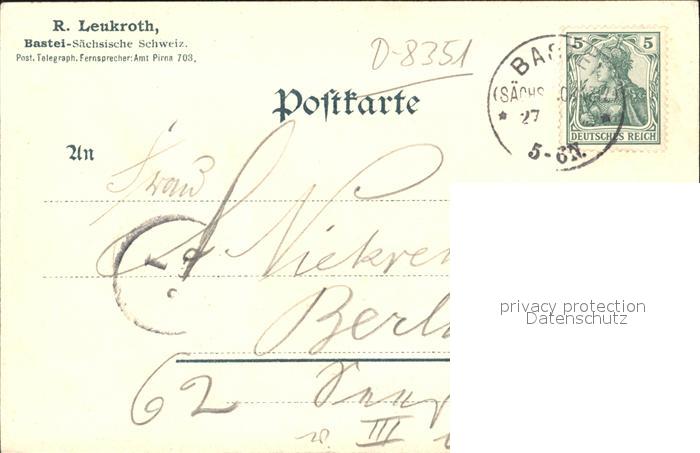 R. Leukroth,
Bastei-Sächsische Schweiz.
Post. Telegraph. Fernsprecher: Amt Pirna 703.
D-8351
Postkarte
BAS
(SÄCHS.
* 27 *
5-6N.
5 5
DEUTSCHES REICH
An
Frau
Niekren
1
Berl
privacy protection
Datenschutz
62
III